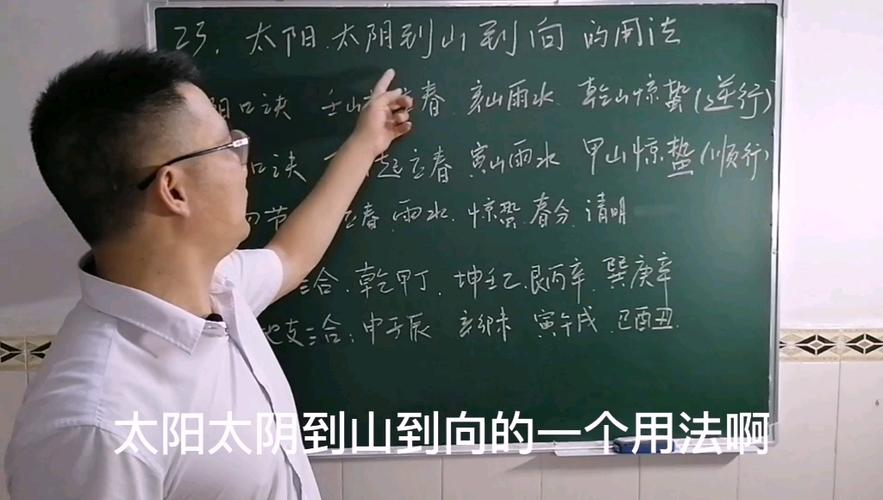 23. 太阳.太阴到山到向 的用法
阳口诀 壬山 春 亥山雨水 乾山惊蛰(逆行)
口诀 起立春 寅山雨水 甲山惊蛰(顺行)
节 立春.雨水.惊蛰.春分.清明
三合.乾甲丁.坤壬乙.艮丙辛.巽庚辛
地支三合:申子辰 亥卯未 寅午戌 巳酉丑.
太阳太阴到山到向的一个用法啊